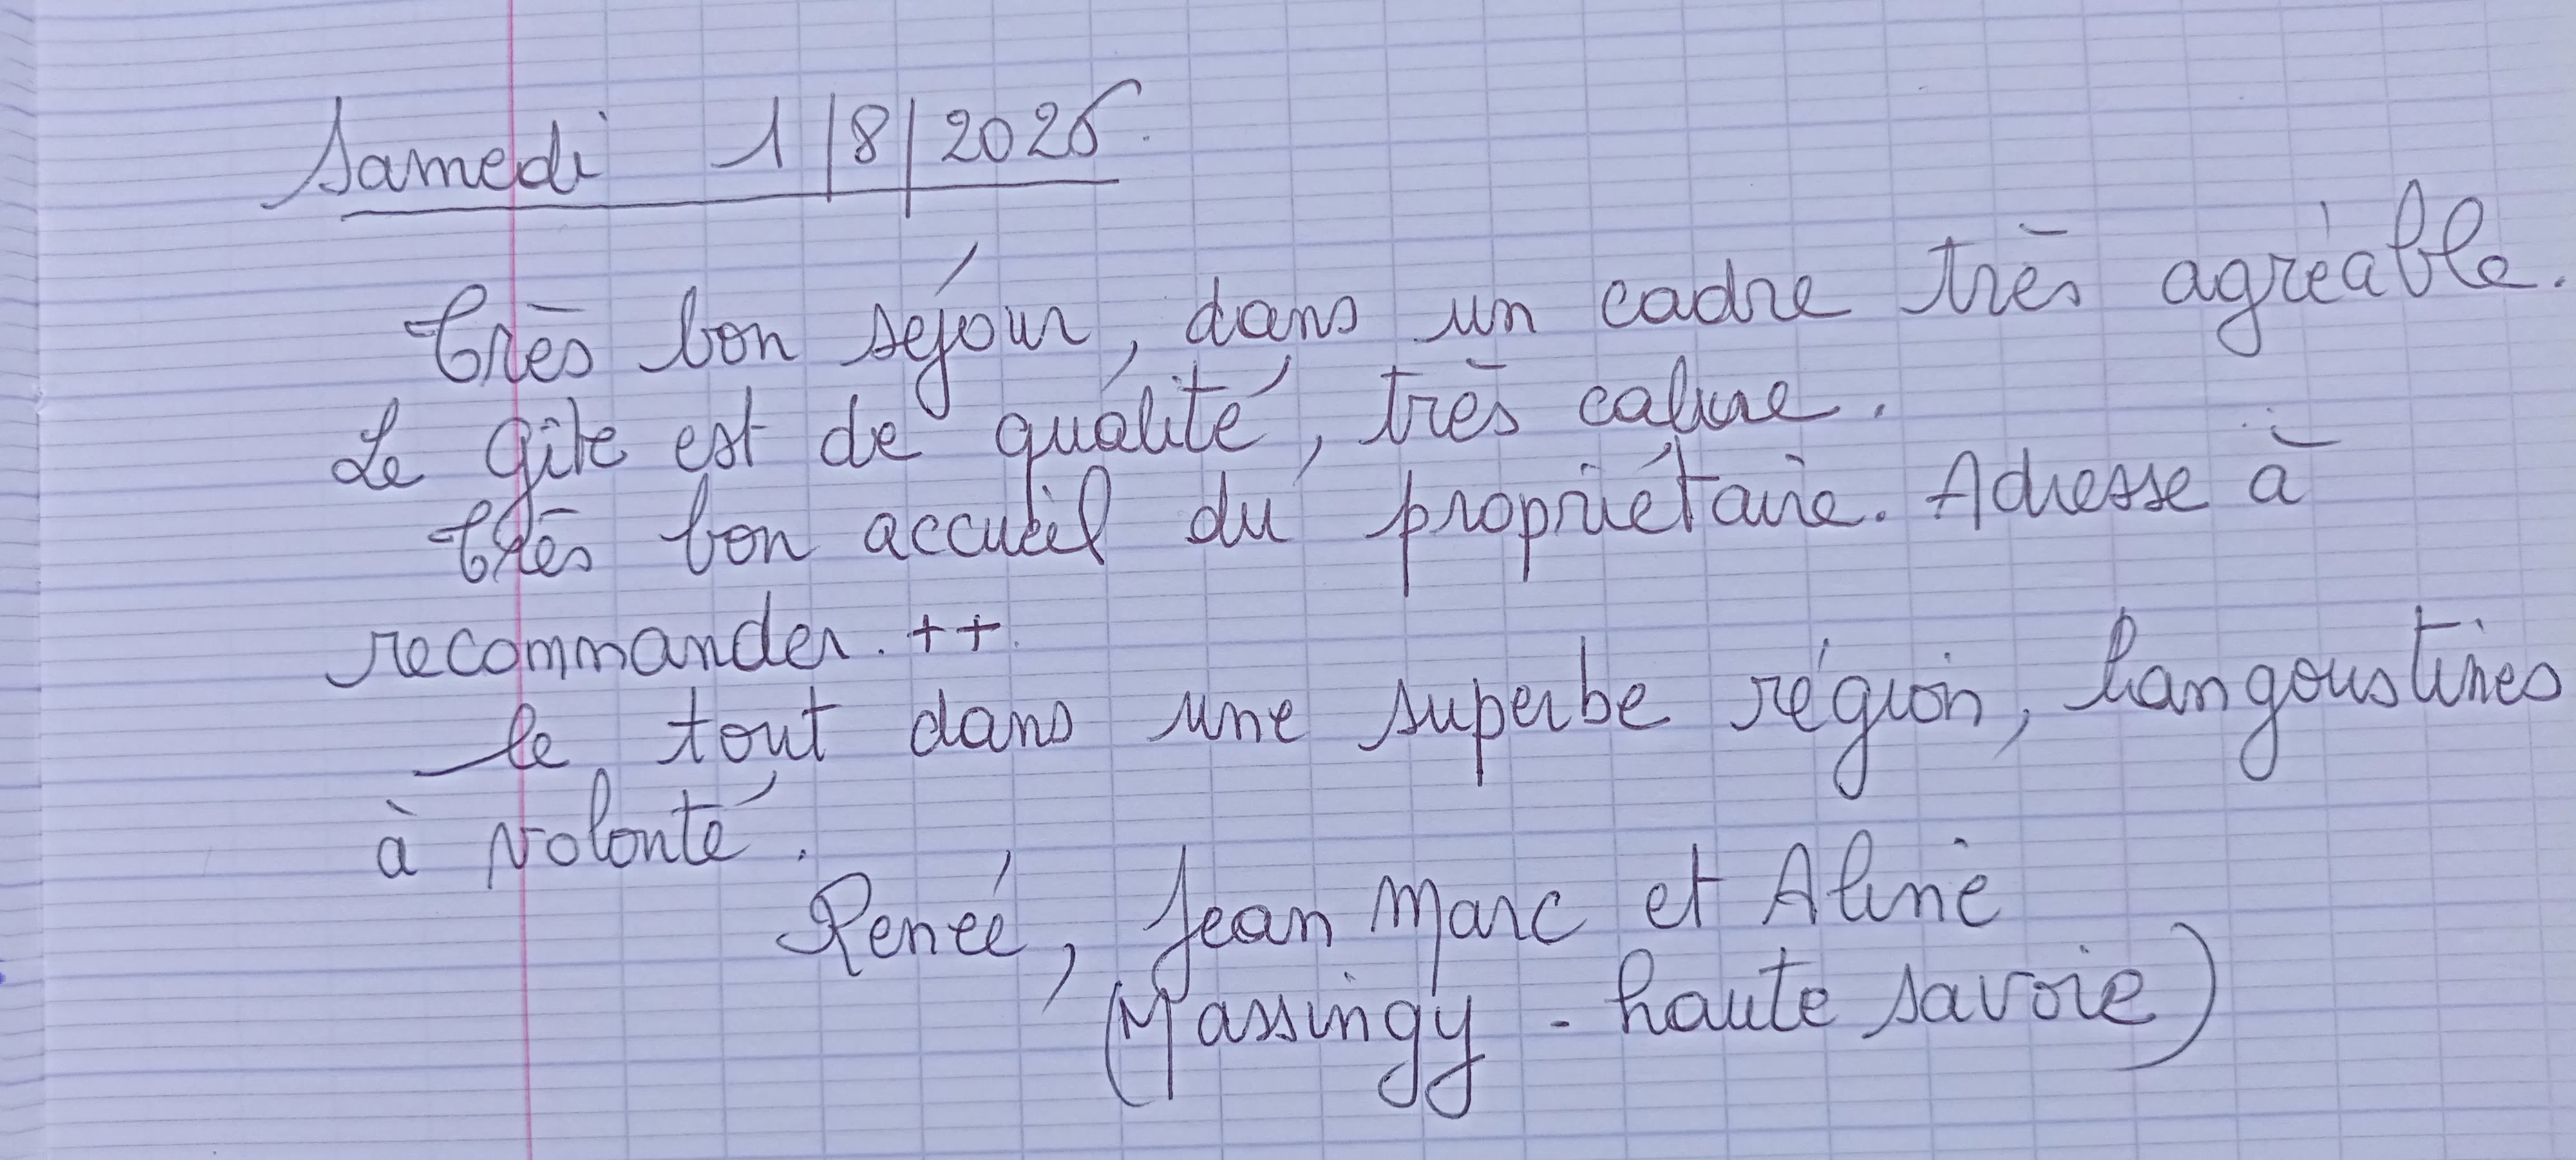 Samedi 1/8/2026.
Très bon séjour, dans un cadre très agréable.
Le gîte est de qualité, très calme.
Très bon accueil du propriétaire. Adresse à
recommander. ++.
le tout dans une superbe région, langoustines
à volonté.
Renée, Jean Marc et Aline
(Massingy - haute savoie)